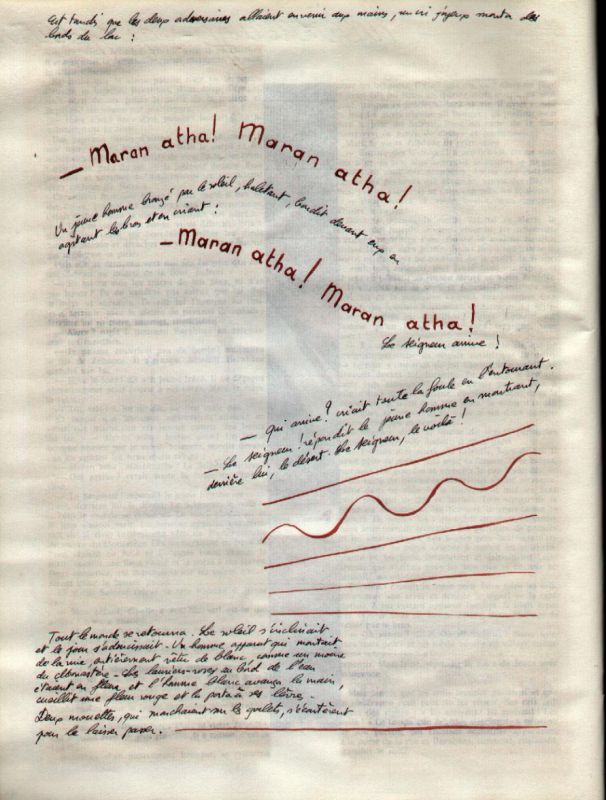 Et tandis que les deux adversaires allaient en venir aux mains, un cri joyeux monta des
bords du lac :
— Maran atha! Maran atha!
Un jeune homme bronzé par le soleil, haletant, bondit devant eux en
agitant les bras et en criant :
— Maran atha! Maran atha!
Le Seigneur arrive !
— Qui arrive? criait toute la foule en l'entourant.
— Le Seigneur! répondit le jeune homme en montrant,
derrière lui, le désert. Le Seigneur, le voilà!
Tout le monde se retourna. Le soleil s'inclinait
et le jour s'adoucissait. Un homme apparut qui montait
de la rive, entièrement vêtu de blanc, comme un moine
du monastère. Les lauriers-roses au bord de l'eau
étaient en fleur et l'homme blanc avança la main,
cueillit une fleur rouge et la porta à ses lèvres.
Deux mouettes, qui marchaient sur les galets, s'écartèrent
pour le laisser passer.